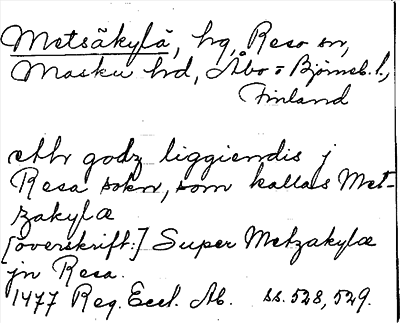 Metsäkylä, hg, Reso sn,
Masku hd, Åbo o Björneb. l.,
Finland
etth godz liggiendis j
Resa sokn, som kallas Met-
zakylæ
[överskrift:] Super Metzakylæ
jn Resa.
1477 Reg. Eccl. Ab. ss. 528, 529.